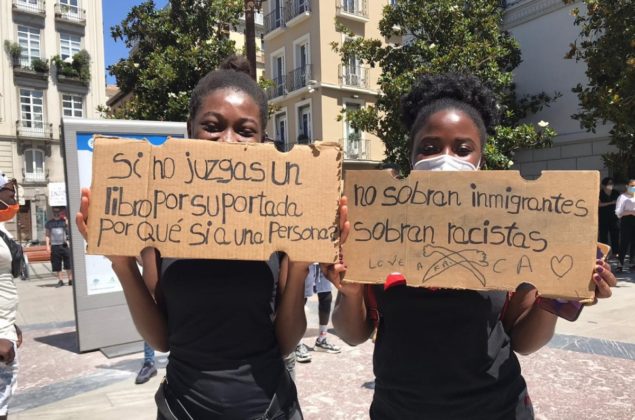 Si no juzgas un
libro por su portada
por qué si a una persona?
no sobran inmigrantes
sobran racistas
LOVE AFRICA